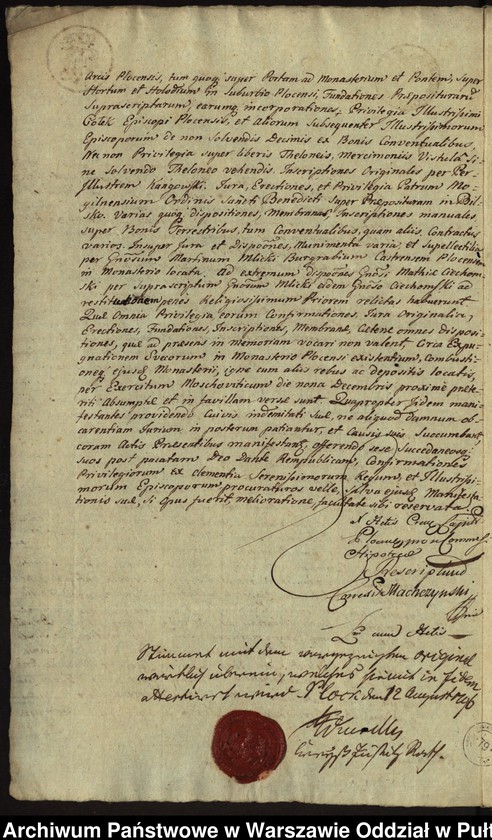 Arcis Plocensis, tum quoq super Portam ad Monasterium et Pontem, super
Hortum et Holodium in Suburbio Plocensi, Fundationes Præpositurarū
Suprascriptarum, earumq incorporationes, Privilegia Illustrissimi
Ciolek Episcopi Plocensis, et Aliorum Subsequenter Illustrissimorum
Episcoporum de non Solvendis Decimis ex Bonis Conventualibus,
Nec non Privilegia super liberis Theloneis, Mercimoniis Vistula Si-
ne Solvendo Theloneo vehendis. Inscriptiones Originales per Per-
Illustrem Kągowski. Jura, Erectiones, et Privilegia Patrum Mo-
gilnensium Ordinis Sancti Benedicti Super Præposituram in Biel-
sko. Varias quoq dispositiones, Membranas, Inscriptiones manuales
super Bonis Terrestribus, tum Conventualibus, quam aliis, Contractus
varios. Insuper Jura et Dispōnes, Munimenta varia, et Supellectilia
per Gnōsum Martinum Mlicki Burgrabium Castrensem Plocensem
in Monasterio locata. Ad extremum dispōnes Gnōsi Mathiæ Ciechom-
ski per suprascriptum Gnosum Mlicki eidem Gnōso Ciechomski ad
restitutionem penes Religiosissimum Priorem relictas habuerunt
Quæ Omnia Privilegia, eorum Confirmationes, Jura Originalia,
Erectiones, Fundationes, Inscriptiones, Membranæ, Cetene omnes disposi-
tiones, quæ ad præsens in memoriam vocari non valent, Circa Expu-
gnationem Svecorum in Monasterio Plocensi existentium, Combusti-
oneq ejusq Monasterii, igne cum aliis rebus ac depositis locatis,
per Exercitum Moschoviticum die nona Decembris proxime præte-
riti Absumptæ et in favillam versæ sunt Quapropter Iidem mani-
festantes providendo Cuivis indemnitati suæ, ne aliquod damnum ob
carentiam Jurium in posterum patiantur, et Causis suis Succumbant,
coram Actis Præsentibus manifestant, offerendo sese Succedaneosq
suos post pacatam Deo Dante Rempublicam, Confirmationes
Privilegiorum ex clementia Serenissimorum Regum, et Illustrissi-
morum Episcoporum procuraturos velle, Salva ejusq Manifesta-
tionis suæ, Si opus fuerit, melioratione, facultate sibi reservata.
Ex Actis
Plocensium
Hipotecæ
Rescriptum
Correxit Machczynski
cum Actis
Stimmt mit dem vorgezeigten Original
wörtlich überein, welches hiemit in fidem
attestirt wird Plock den 12 August 1796
Justitz Rath.
Archiwum Państwowe w Warszawie Oddział w Puł